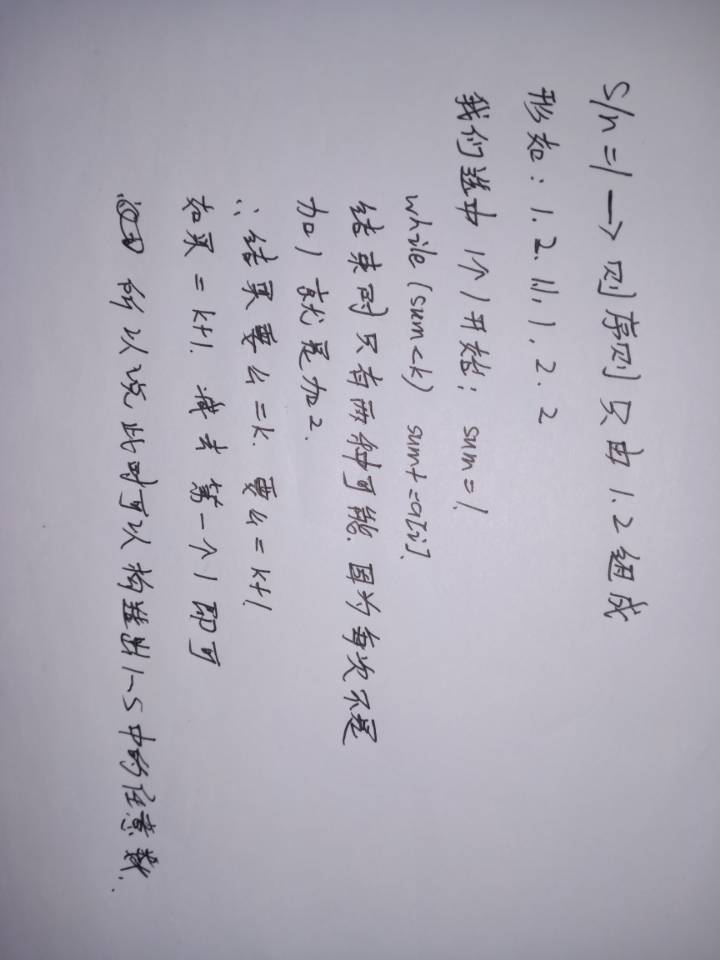 S/n=1 → 则序列只由1.2组成
形如: 1. 2. 1. 1, 1, 2. 2
我们选中1个1开始; sum=1.
while (sum<k) sum+=a[i].
结束时只有两种可能. 因为每次不是
加1就是加2.
∴结果要么=k. 要么=k+1.
如果=k+1. 减去第一个1即可
所以说此时可以构造出1~S中的任意数.